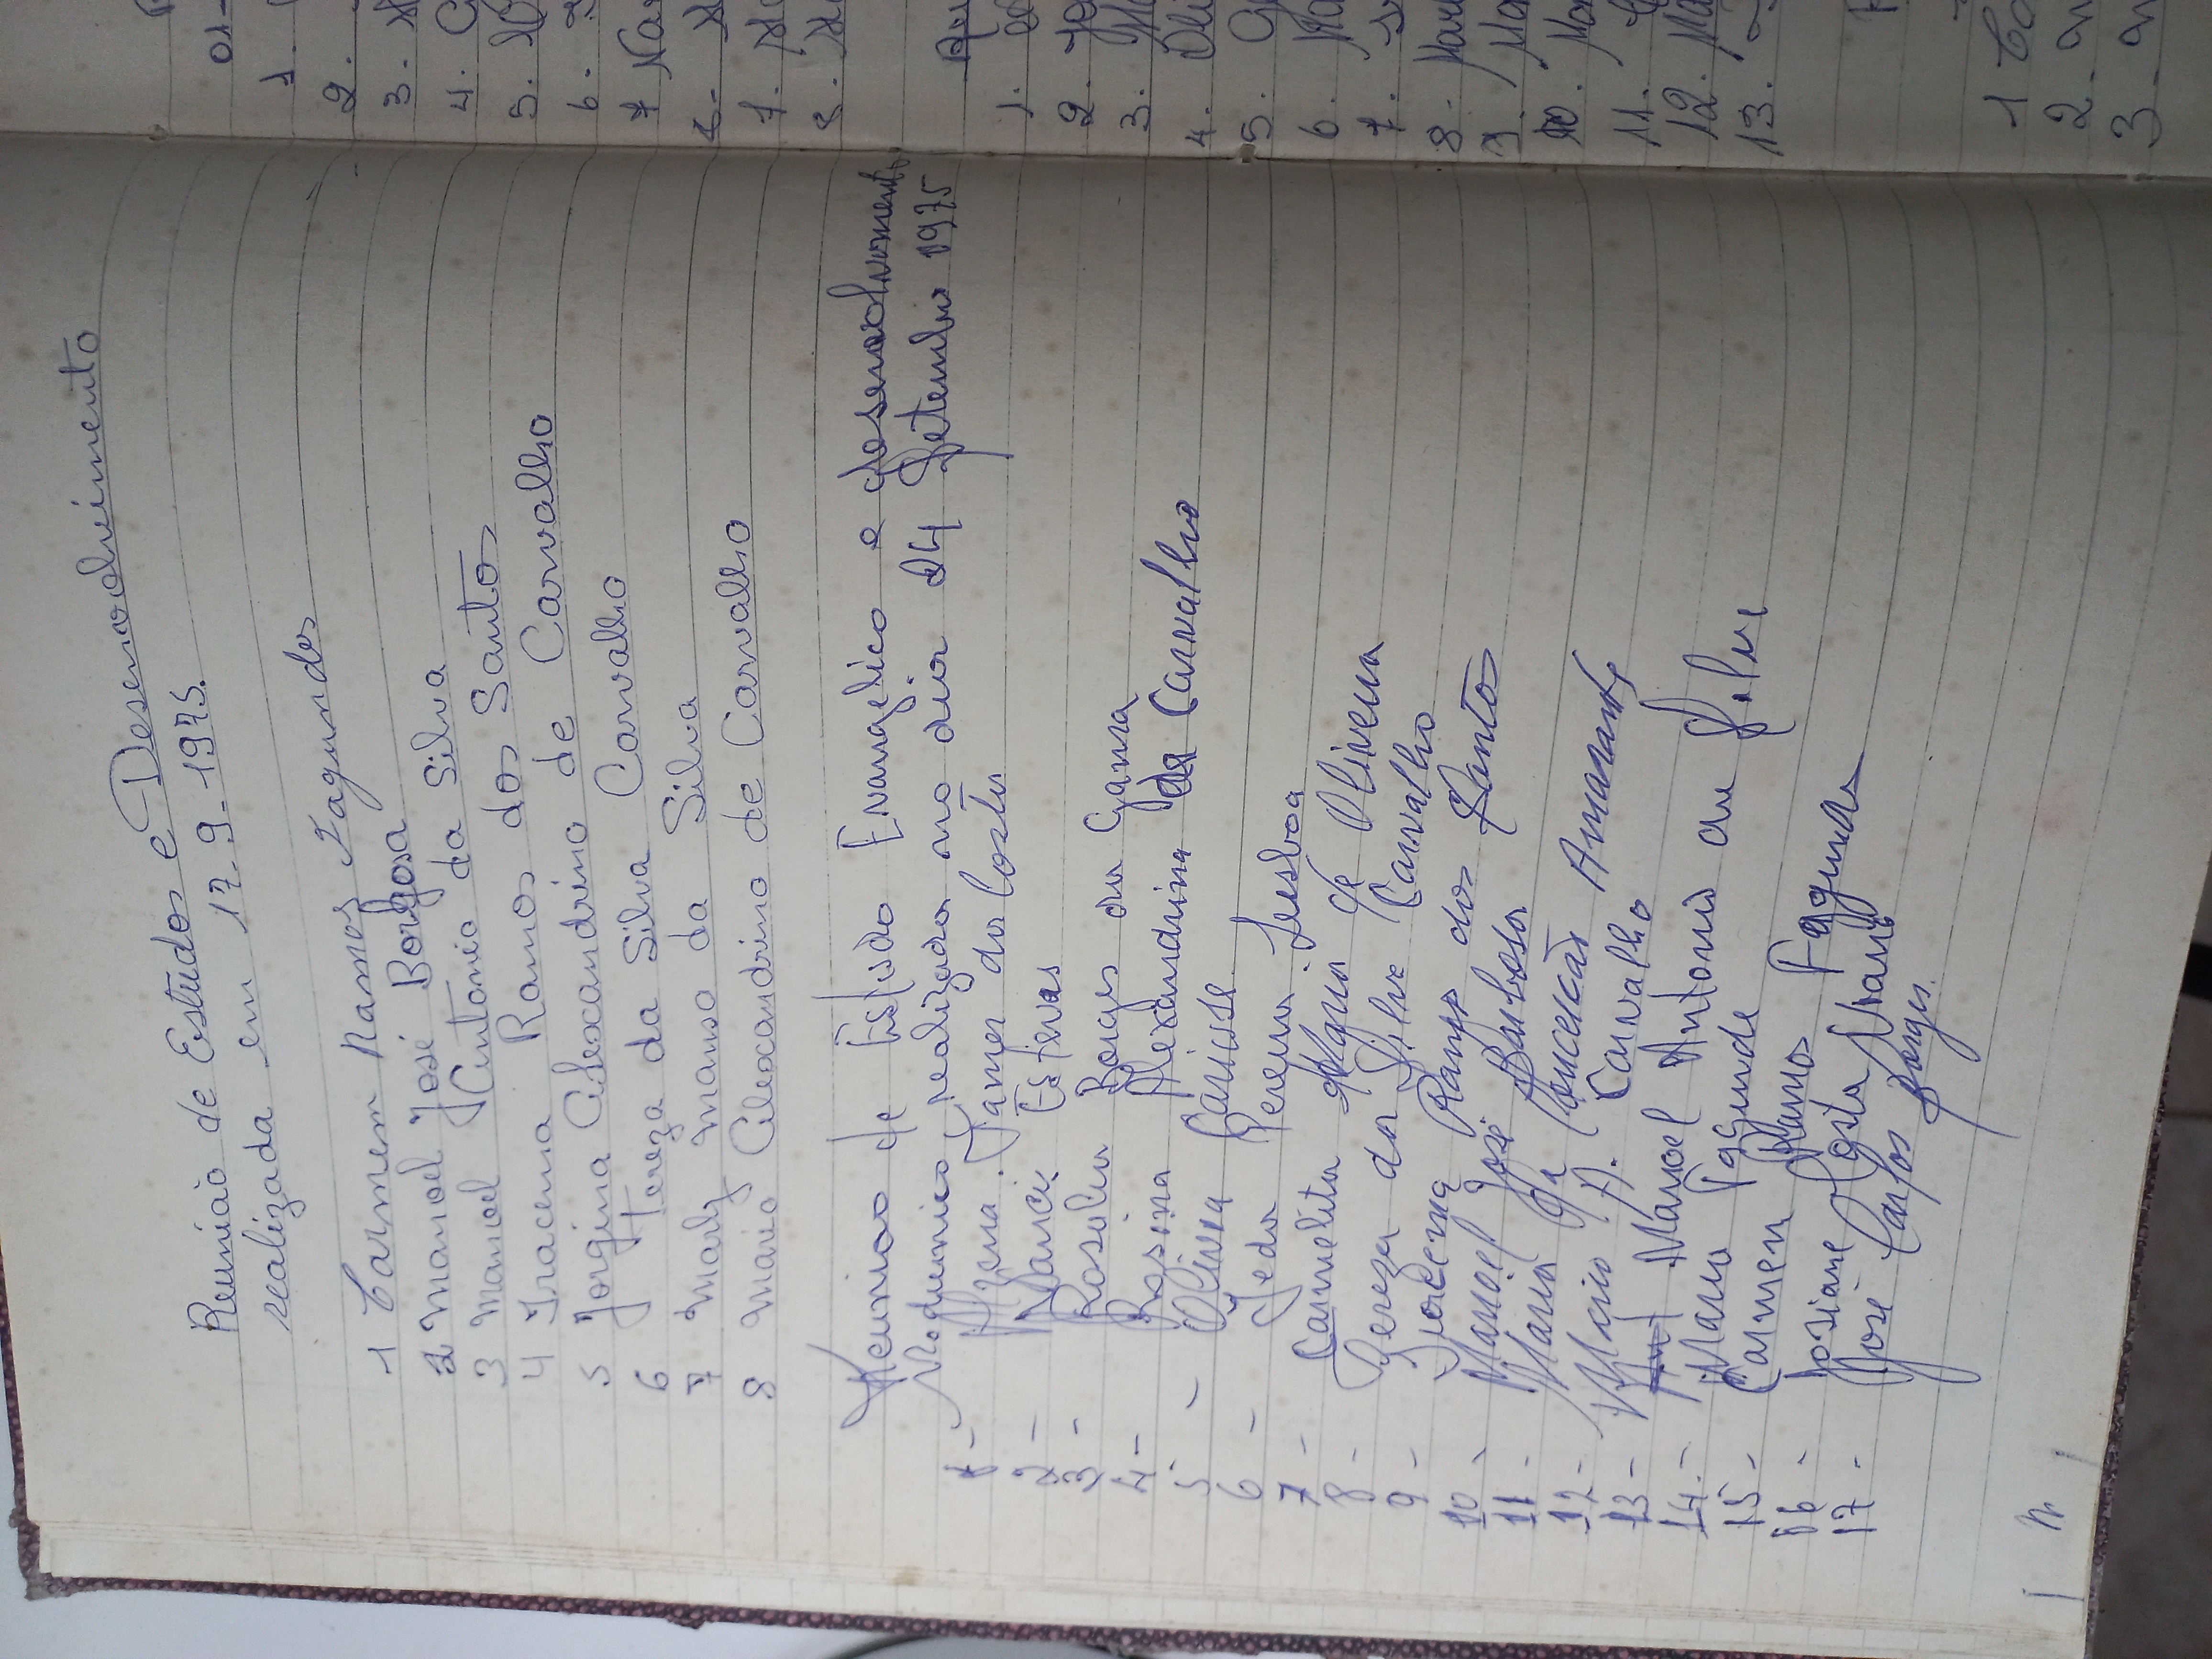 Reunião de Estudos e Desenvoluimento
realizada em 17-9-1975.
1 Carmem Ramos Fagundes
2 Manoel José Borbosa
3 Manoel Antonio da Silva
4 Iracema Ramos dos Santos
5 Jorgina Alexandrino de Carvalho
6 Tereza da Silva Carvalho
7 Marly Manso da Silva
8 Mario Alexandrino de Carvalho
Reuniao de Estudo Evangelico e desenvolvimento
Mediunico, realizada no dia 24 Setembro 1975
1- Lames da Costa
2- Esteves
3- Rosalia Borges da Gama
4- Rosina Alexandrina de Carvalho
5- Olivia Canisse
6- Ieda Perena Lisboa
7- Carmelita de Oliveira
8- Tereza da Silva Carvalho
9- Iracema Ramos dos Santos
10- Manoel José Barbosa
11- Maria da Conceição Amarante
12- Mario A. Carvalho
13- Manoel Antonio da Silva
14- Maria Fagunde
15- Carmem Ramos Fagundes
16- Josiane Costa
17- José Carlos Borges.
01-
1.
2.
3.
4.
5.
6.
7
8-
7.
8.
1.
2.
3.
4.
5.
6.
7.
8.
9.
10.
11.
12.
13.
1
2.
3.